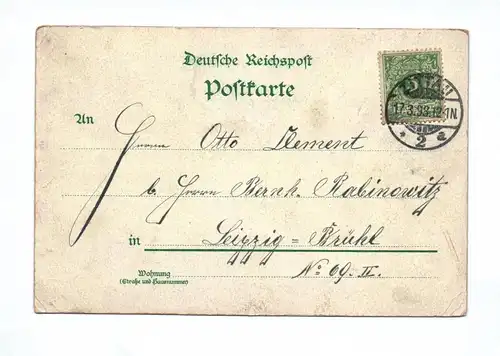 Deutsche Reichspost
Postkarte
An
Herrn Otto Klement
b. Herrn Bernh. Rabinowitz
in Leipzig = Brühl
No 69. II.
Wohnung
(Straße und Hausnummer)
ZITTAU
* 2 a